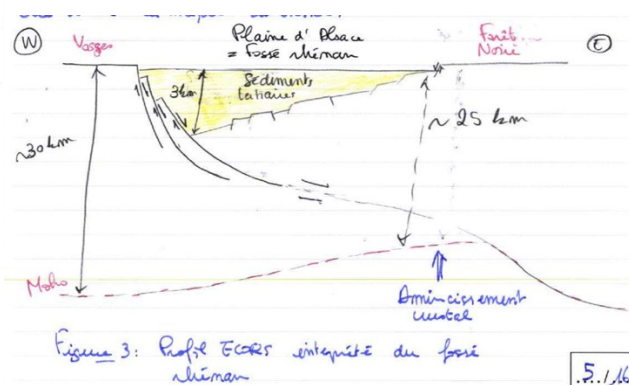 W
Vosges
Plaine d'Alsace
= Fossé rhénan
Forêt
Noire
E
Sédiments
tertiaires
3km
~30km
~25 km
Moho
Amincissement
crustal
Figure 3: Profil ECORS interprété du fossé
rhénan
5/16